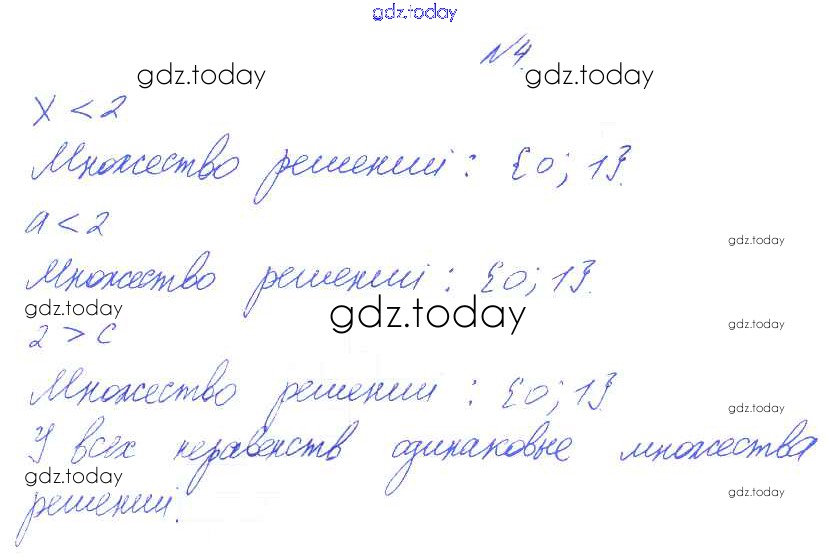 gdz.today
№4.
gdz.today gdz.today
x < 2
Множество решений : {0; 1}.
a < 2
gdz.today
Множество решений : {0; 1}.
gdz.today gdz.today gdz.today
2 > c
Множество решений : {0; 1}.
gdz.today
У всех неравенств одинаковые множества
gdz.today
решений.
gdz.today